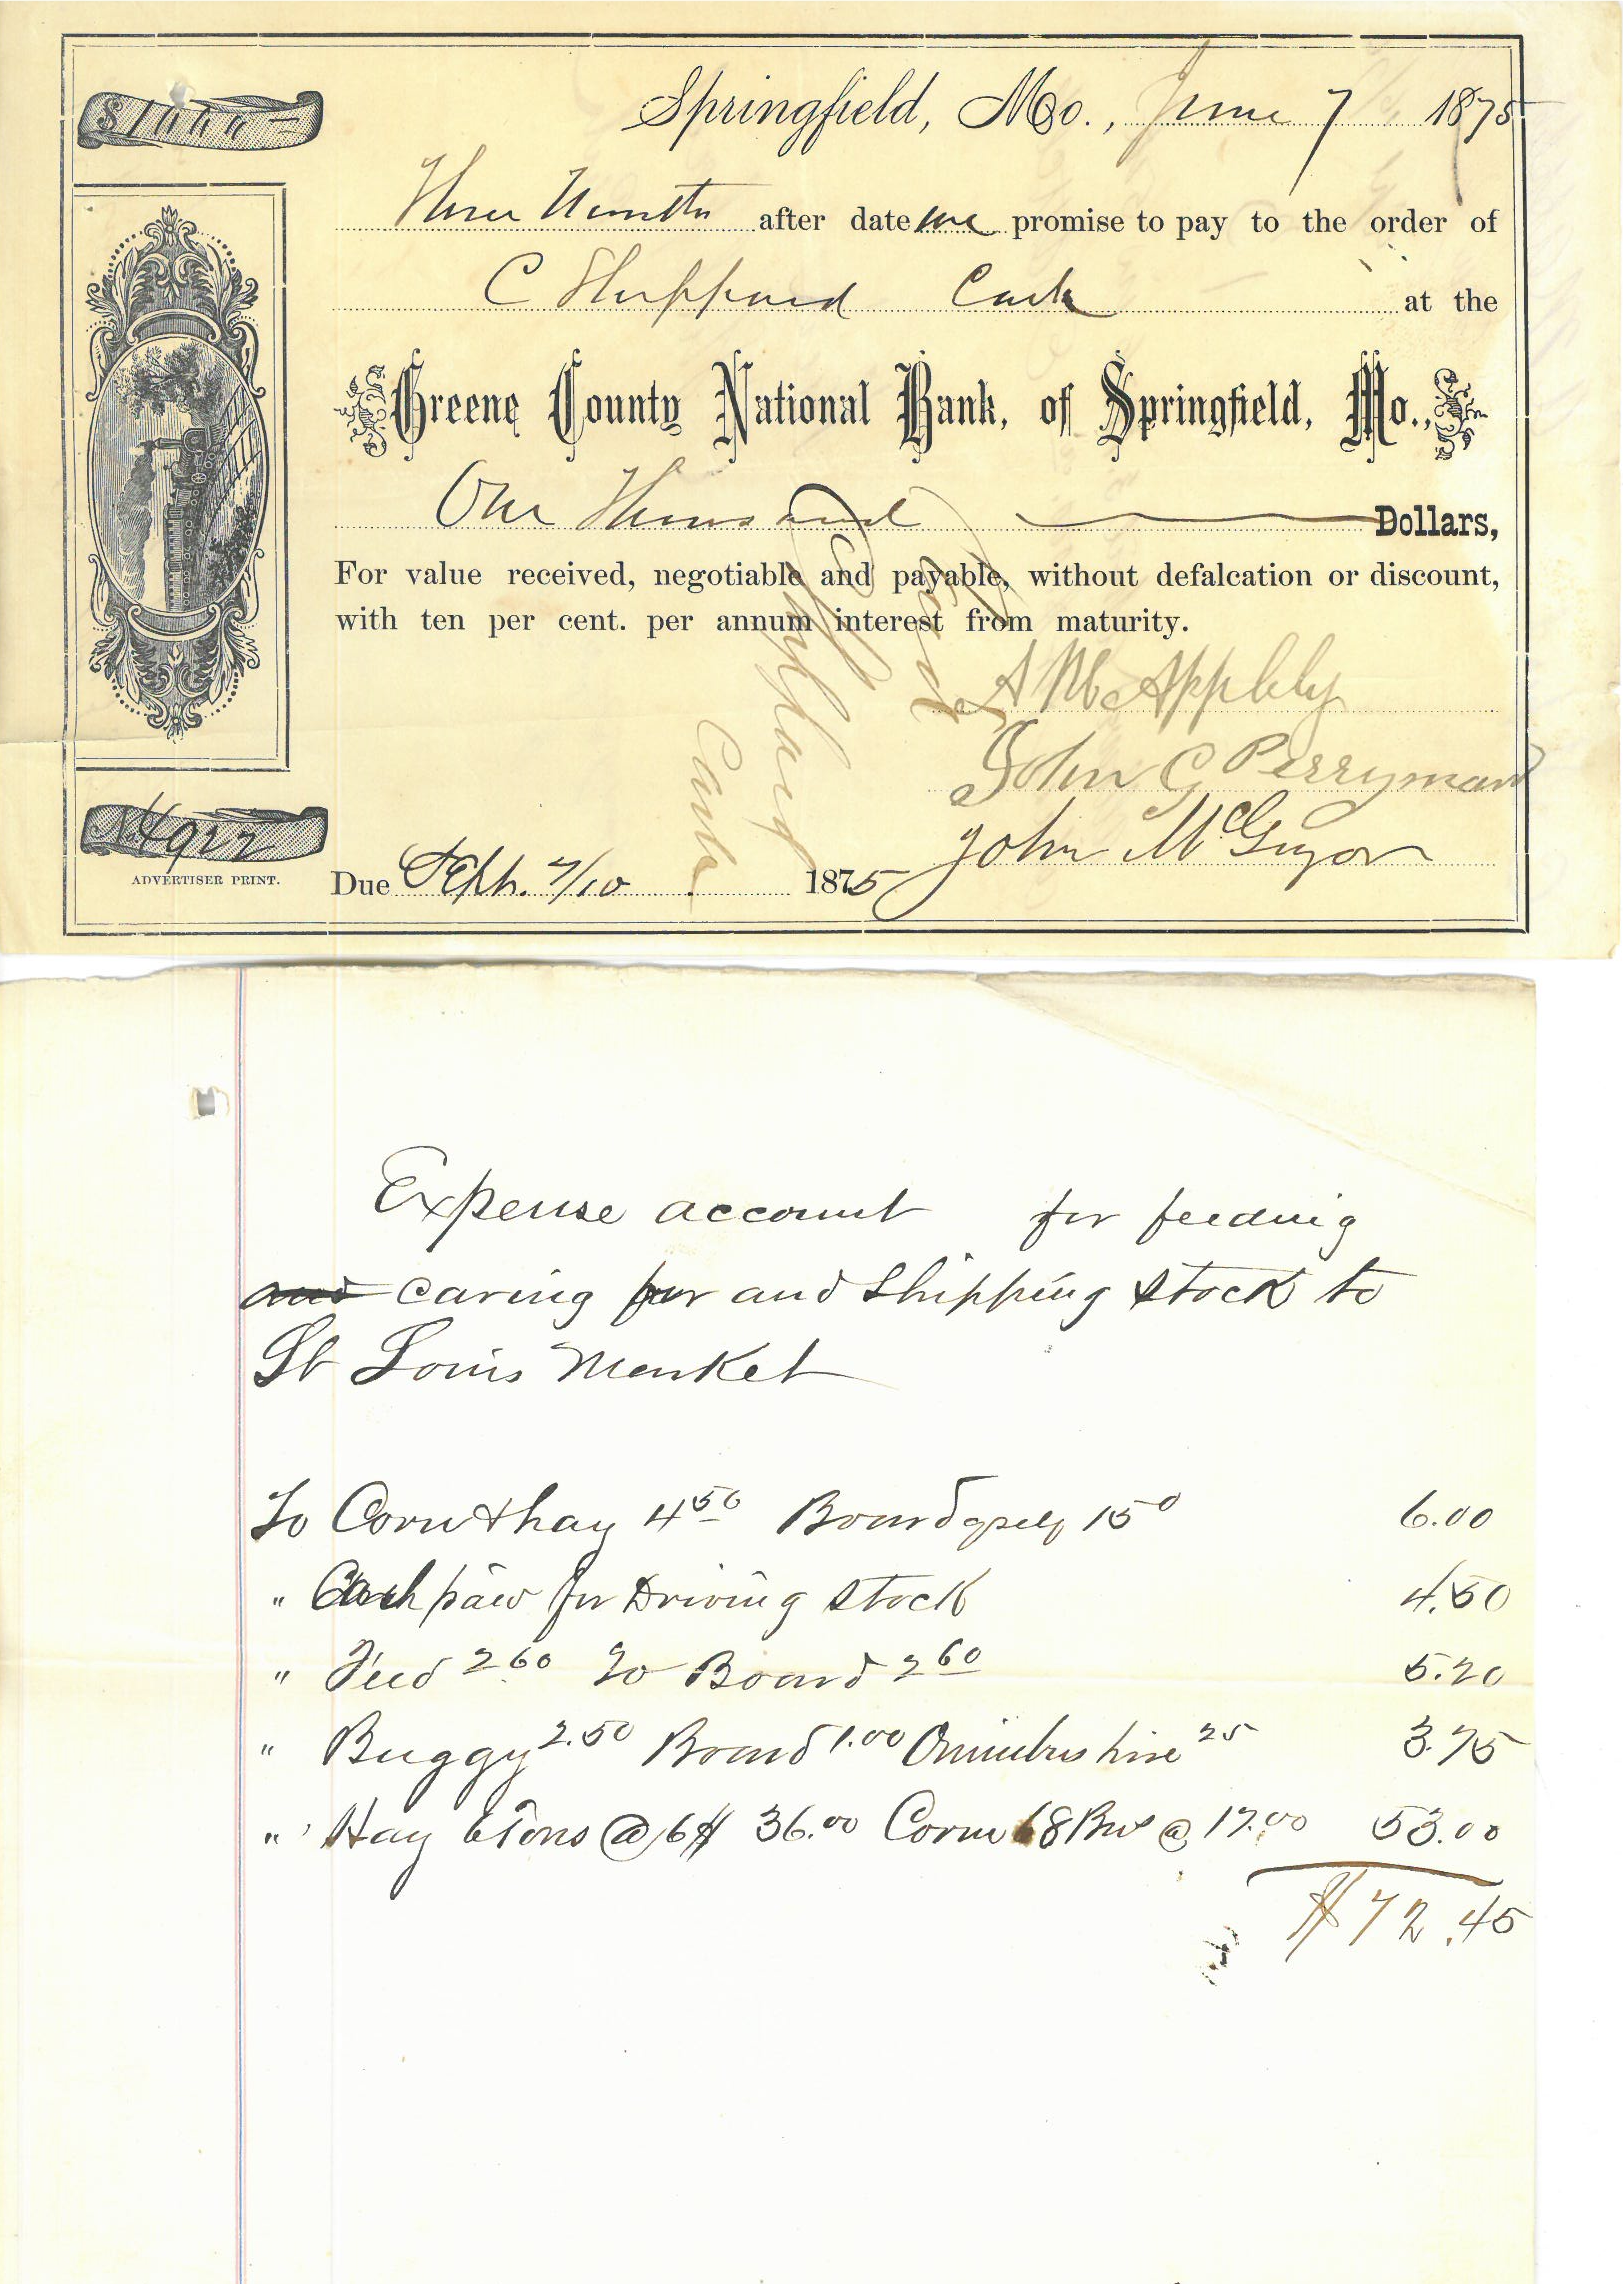 $1000 =
Springfield, Mo., June 7 1875
Three Months after date we promise to pay to the order of
C Sheppard Cash at the
Greene County National Bank, of Springfield, Mo.,
One Thousand Dollars,
For value received, negotiable and payable, without defalcation or discount,
with ten per cent. per annum interest from maturity.
A M Appleby
John G Perryman
John McGuyor
Paid
Cash
No. 4922
ADVERTISER PRINT.
Due Sept. 7/10 1875
Expense account for feeding
and caring for and shipping stock to
St Louis Market
To Corn & hay 4 50 Board of self 1 50 6.00
" Cash paid for Driving stock 4.50
" Feed 2 60 To Board 2 60 5.20
" Buggy 2.50 Board 1.00 Omnibus hire 25 3.75
" Hay 6 Tons @ 6$ 36.00 Corn 68 Bus @ 17.00 53.00
$72.45